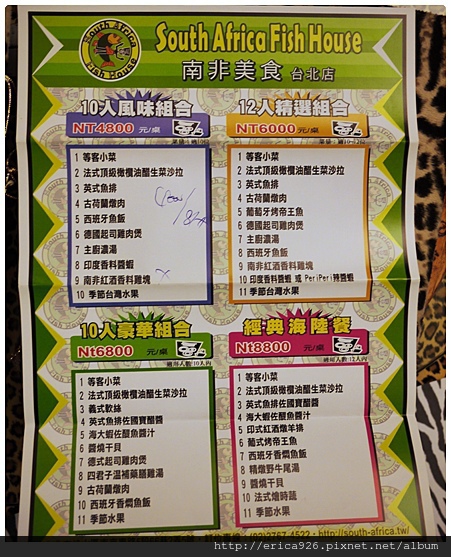 South Africa
Fish House
South Africa Fish House
南非美食 台北店
10人風味組合
NT4800 元/桌
1 等客小菜
2 法式頂級橄欖油醋生菜沙拉
3 英式魚排
4 古荷蘭燉肉
5 西班牙魚飯
6 德國起司雞肉煲
7 主廚濃湯
8 印度香料醬蝦
9 南非紅酒香料雞塊
10 季節台灣水果
12人精選組合
NT6000 元/桌
1 等客小菜
2 法式頂級橄欖油醋生菜沙拉
3 英式魚排
4 古荷蘭燉肉
5 葡萄牙烤帝王魚
6 德國起司雞肉煲
7 主廚濃湯
8 西班牙魚飯
9 南非紅酒香料雞塊
10 印度香料醬蝦 或 PeriPeri辣醬蝦
11 季節台灣水果
10人豪華組合
Nt6800 元/桌
適用人數:10人內
1 等客小菜
2 法式頂級橄欖油醋生菜沙拉
3 義式軟絲
4 英式魚排佐國寶醋醬
5 海大蝦佐醃魚醬汁
6 醬燒干貝
7 德式起司雞肉煲
8 四君子溫補藥膳雞湯
9 古荷蘭燉肉
10 西班牙香燜魚飯
11 季節水果
經典海陸餐
Nt8800 元/桌
適用人數:12人內
1 等客小菜
2 法式頂級橄欖油醋生菜沙拉
3 英式魚排佐國寶醋醬
4 海大蝦佐醃魚醬汁
5 印式紅酒燉羊排
6 葡式烤帝王魚
7 西班牙香燜魚飯
8 精燉野牛尾湯
9 醬燒干貝
10 法式燴時蔬
11 季節水果
(02)2767-4522 · http://south-africa.tw/
http://erica926.pixnet.net/album